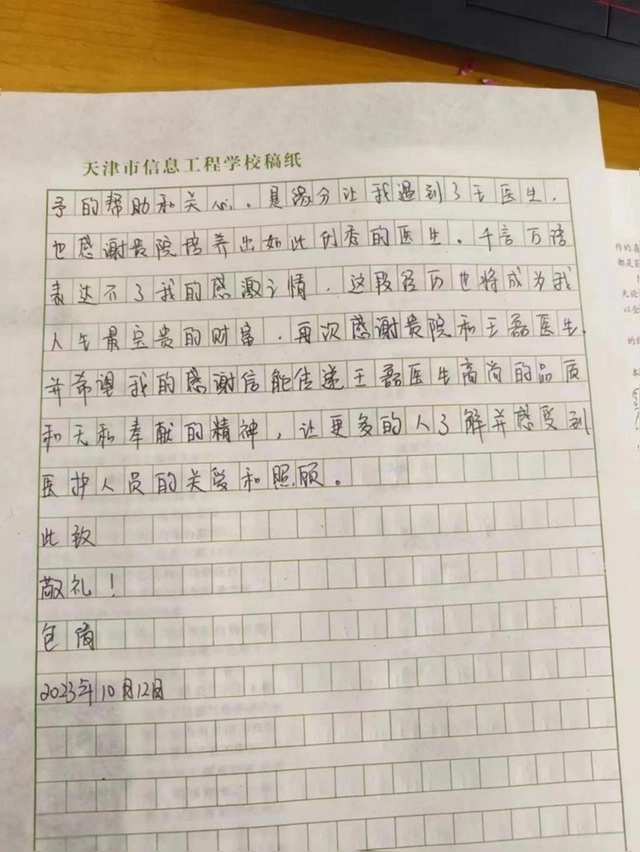 天津市信息工程学校稿纸
予的帮助和关心。是缘分让我遇到了王医生，
也感谢贵院培养出如此优秀的医生。千言万语
表达不了我的感激之情，这段经历也将成为我
人生最宝贵的财富，再次感谢贵院和王磊医生，
并希望我的感谢信能传递王磊医生高尚的品质
和无私奉献的精神，让更多的人了解并感受到
医护人员的关爱和照顾。
此致
敬礼！
包
2023年10月12日